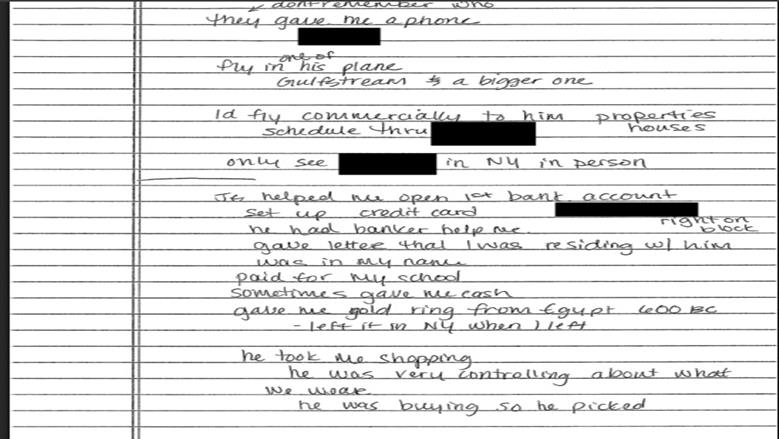 don't remember who
they gave me a phone
one of
fly in his plane
Gulfstream & a bigger one
Id fly commercially to him properties
schedule thru houses
only see in NY in person
helped me open 1st bank account
set up credit card
he had banker help me right on
block
gave letter that I was residing w/ him
was in my name
paid for my school
sometimes gave me cash
gave me gold ring from Egypt 600 BC
- left it in NY when I left
he took me shopping
he was very controlling about what
we wear
he was buying so he picked